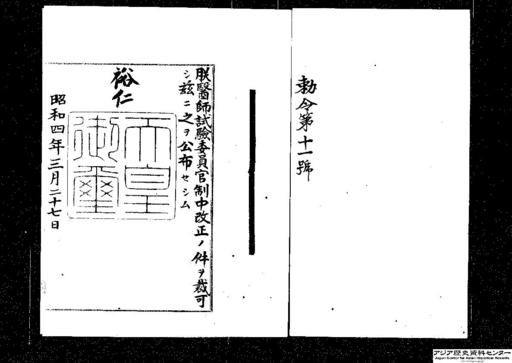 勅令第十一號
朕醫師試驗委員官制中改正ノ件ヲ裁可
シ茲ニ之ヲ公布セシム
裕仁
天皇
御璽
昭和四年三月二十七日
アジア歴史資料センター
Japan Center for Asian Historical Records